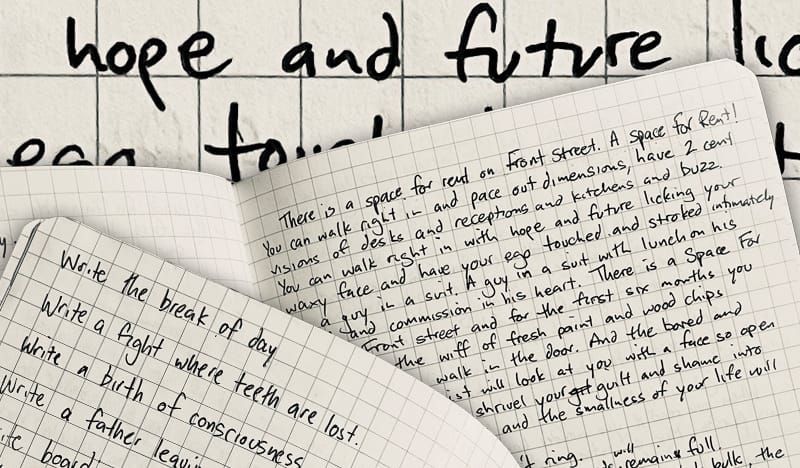 hope and future lic
ego touch
There is a space for rent on Front Street. A space for Rent!
You can walk right in and pace out dimensions, have 2 cent
visions of desks and receptions and kitchens and buzz.
You can walk right in with hope and future licking your
waxy face and have your ego touched and stroked intimately
a guy in a suit A guy in a suit with lunch on his
and commission in his heart. There is a Space For
Front street and for the first six months you
the wiff of fresh paint and wood chips
walk in the door. And the bored and
ist will look at you with a face so open
shrivel your guilt and shame into
and the smallness of your life will
't ring. will
remains full
bulk, the
Write the break of day
Write a fight where teeth are lost.
Write a birth of consciousness
Write a father leavi
ite board